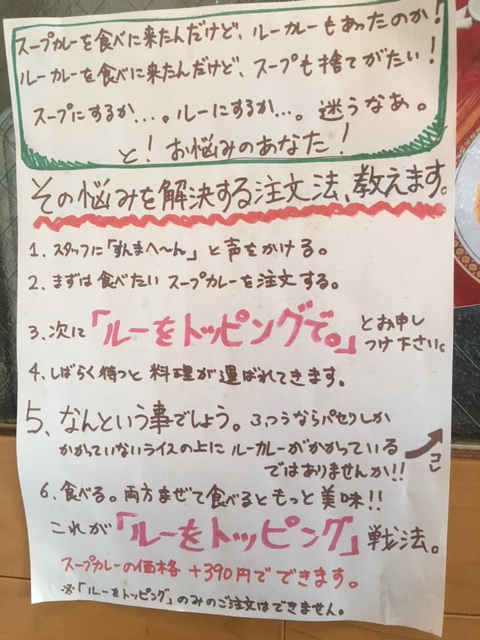 スープカレーを食べに来たんだけど、ルーカレーもあったのか!
ルーカレーを食べに来たんだけど、スープも捨てがたい!
スープにするか…。ルーにするか…。迷うなあ。
と!お悩みのあなた!
その悩みを解決する注文法、教えます。
1. スタッフに「すんまへ〜ん」と声をかける。
2. まずは食べたいスープカレーを注文する。
3. 次に「ルーをトッピングで。」とお申し
つけ下さい。
4. しばらく待つと料理が運ばれてきます。
5、なんという事でしょう。ふつうならパセリしか
かかっていないライスの上にルーカレーがかかっている
ではありませんか!!
コレ
6. 食べる。両方まぜて食べるともっと美味!!
これが「ルーをトッピング」戦法。
スープカレーの価格+390円でできます。
※「ルーをトッピング」のみのご注文はできません。